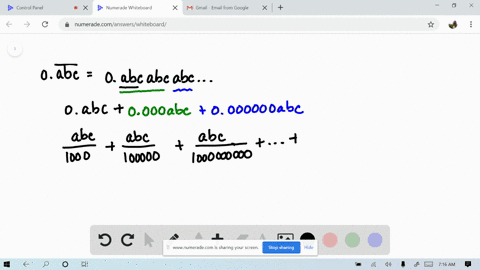 Control Panel Numerade Whiteboard Gmail - Email from Google
numerade.com/answers/whiteboard/
0.a̅b̅c̅ = 0.abcabcabc...
0.abc + 0.000abc + 0.000000abc
abc/1000 + abc/100000 + abc/1000000000 + ... +
www.numerade.com is sharing your screen. Stop sharing Hide
7:16 AM